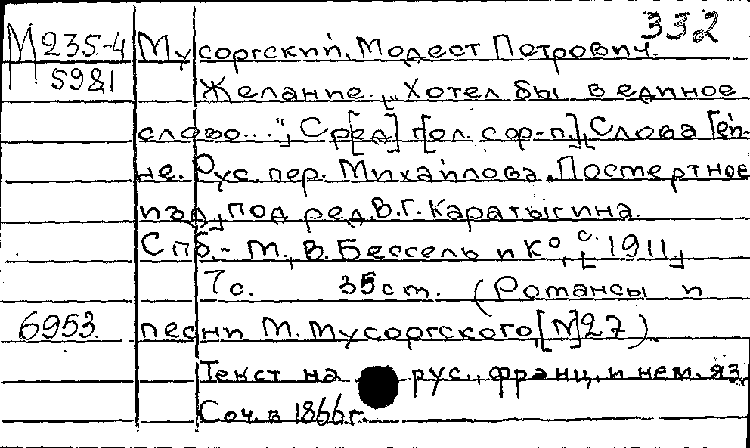 332
М 235-4 Мусоргский, Модест Петрович.
5981 Желание. „Хотел бы в единое
слово...“, Ср[ед] гол. с ф-п.], Слова Гей-
не. Рус. пер. Михайлова. Посмертное
изд., под ред. В.Г. Каратыгина.
Спб.- М., В. Бессель и К°, [с. 1911]
7 с. 35 cm. (Романсы и
6953 песни М. Мусоргского, [№]27).
Текст на рус., франц. и нем. яз.
Соч. в 1866 г.